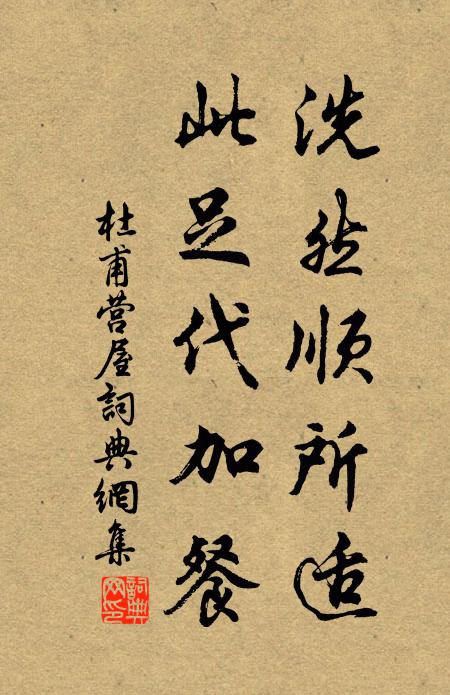 洗然順所适
此足代加餐
杜甫营屋詞典網集
詞典网印